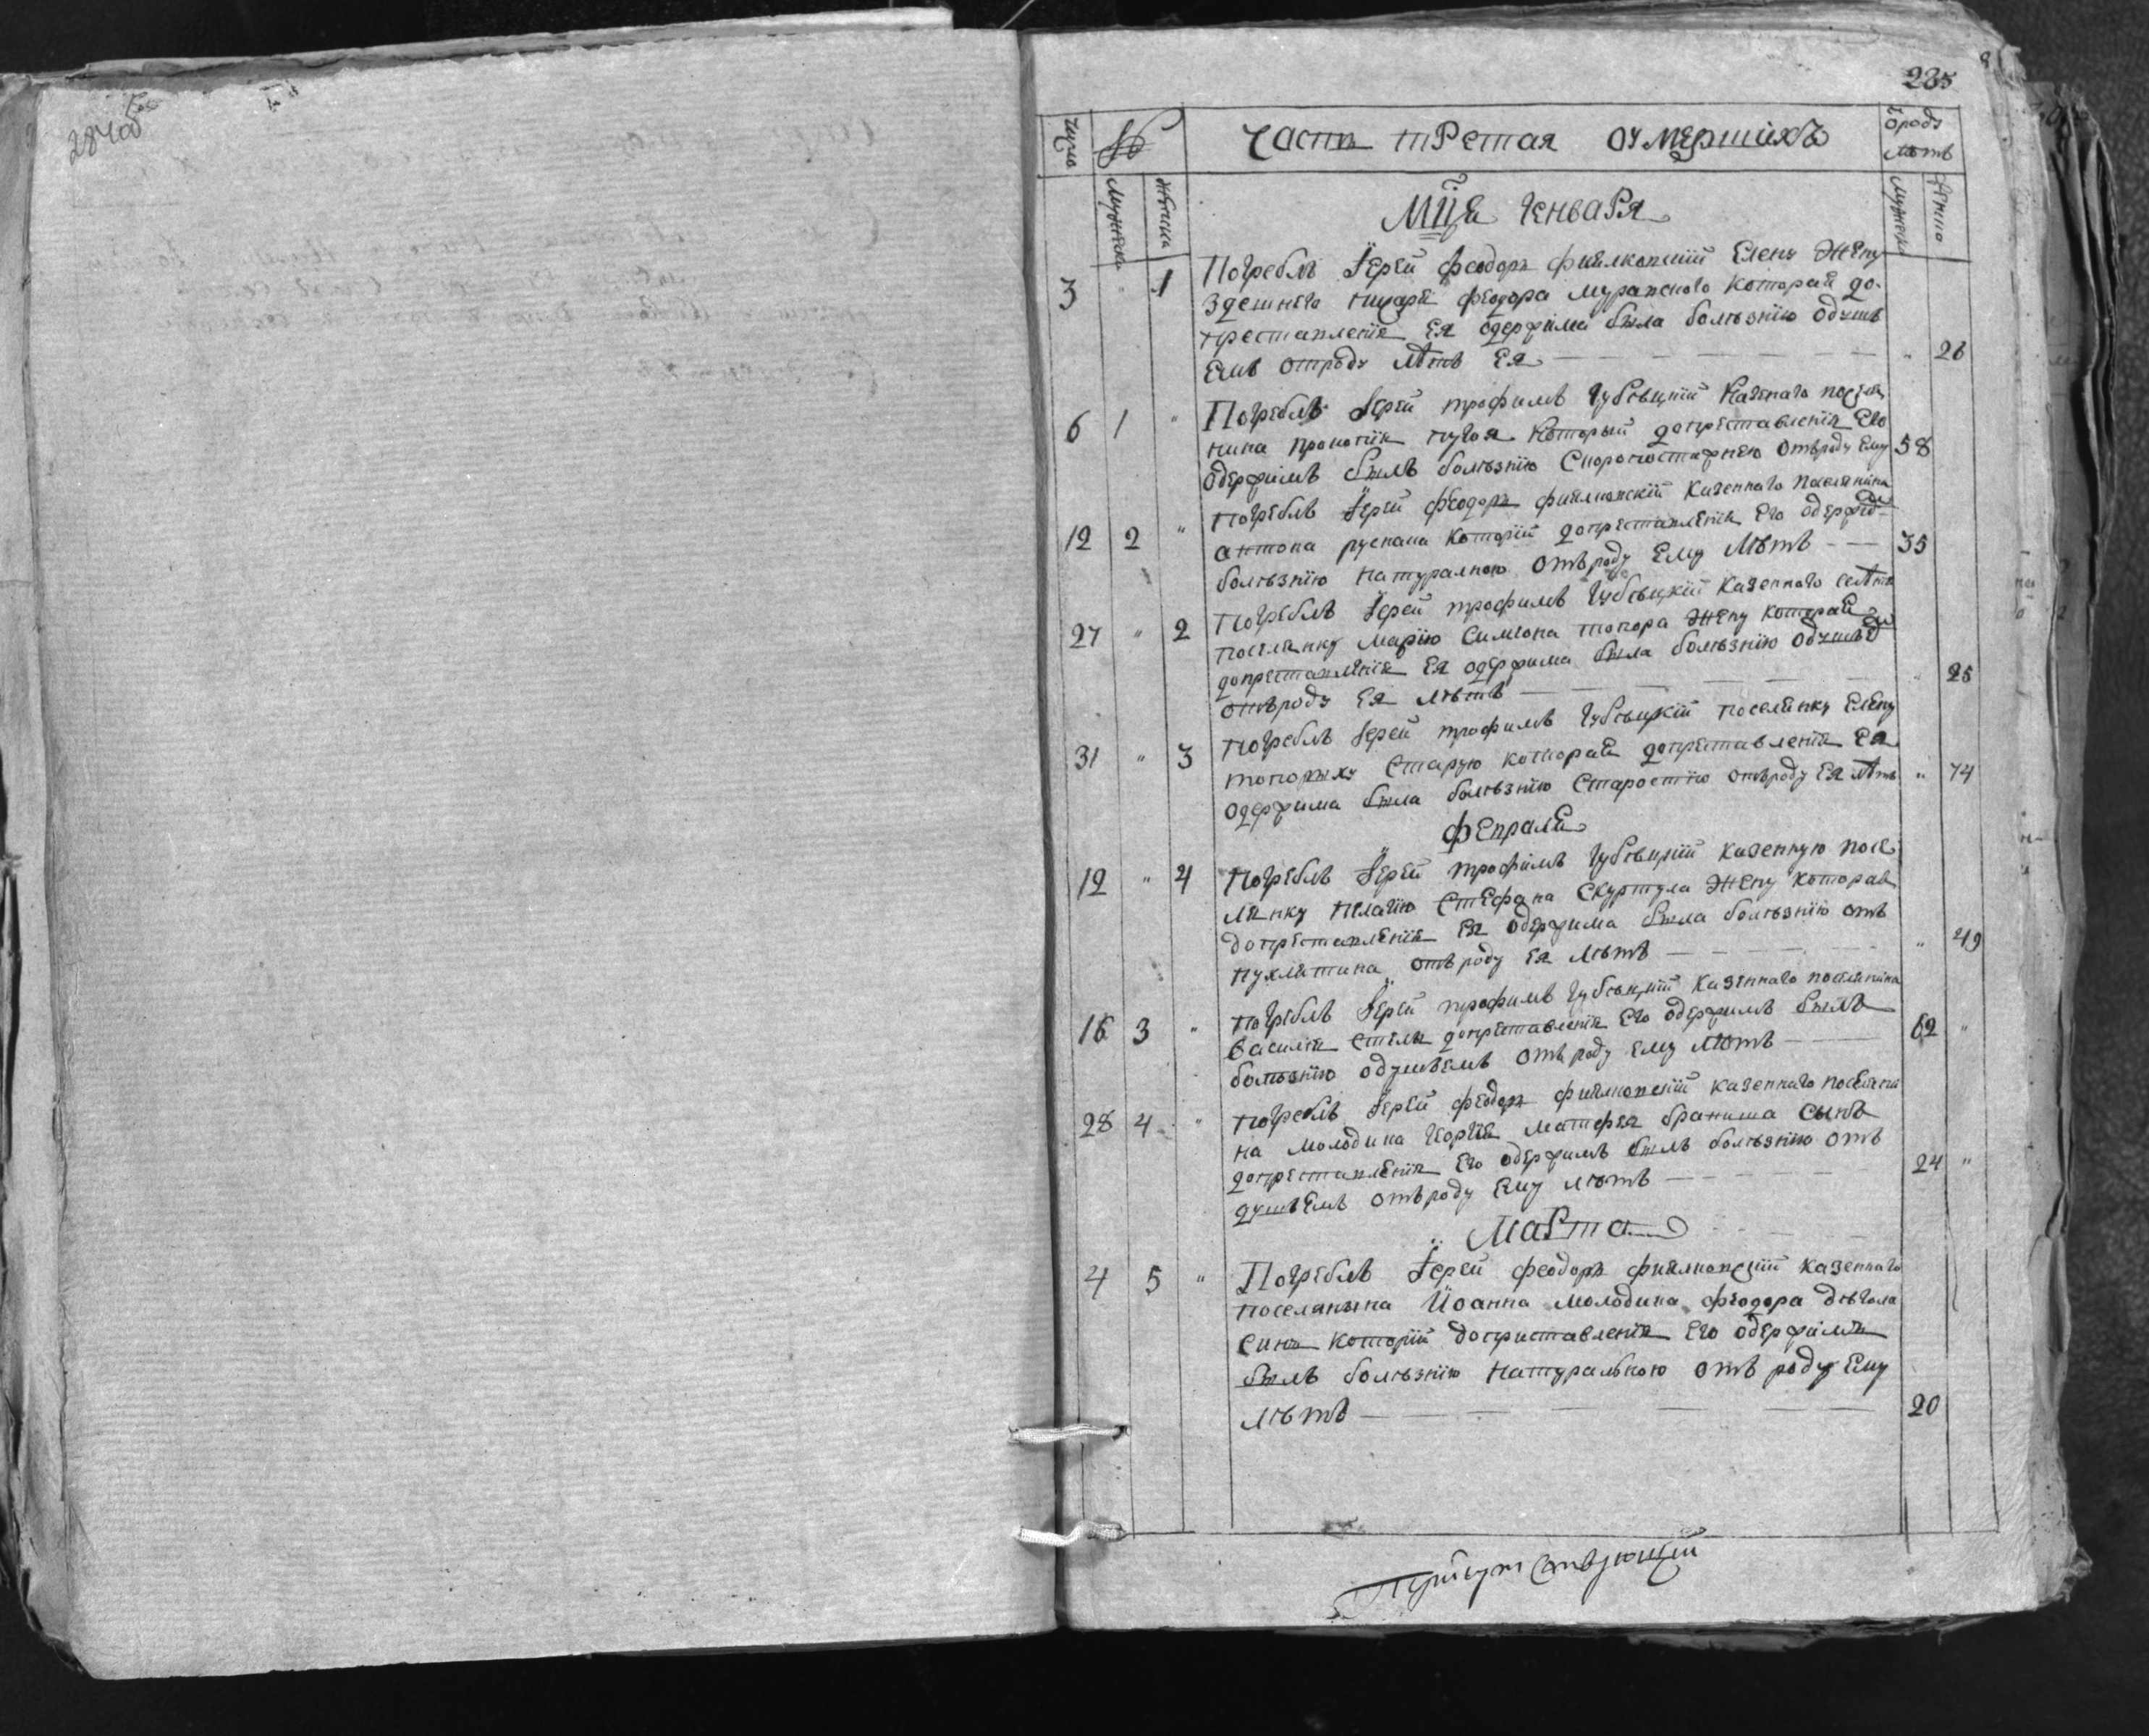 285
Число
№
Часть третая оумершихъ
отроду
лѣтъ
Мужеска
женска
Мужеска
Женска
Мца Генваря
3 " 1 Погреблъ Іерей Феодоръ Фиялковскій Елену жену
здешнего Феодора Муравского которая до-
преставленія Ея одержима была болѣзнію одуш
емъ отроду лѣтъ Ея " 26
6 1 " Погреблъ Іерей Трофимъ Губскцкій Казеного поселя
нина прокопія который допреставленія Его
одержимъ былъ болѣзнію Скоропостажнею отъроду Ему 58
12 2 " Погреблъ Іерей Феодоръ Фиялковскій Казенного поселянина
антона руснака которій допреставленія Его одержим
болѣзнію натуралною отъроду Ему Лѣтъ 35
27 " 2 Погреблъ Іерей Трофимъ Губскцкій Казенного
поселянку Марію Симиона топора жену которая
допреставленія Ея одержима была болѣзнію одушъем
отъроду Ея лѣтъ " 25
31 " 3 погреблъ Іерей трофимъ Губскцкій поселянку Елену
Старую которая допреставленія Ея
одержима была болѣзнію Старостію отъроду Ея лѣтъ " 74
Февраля
12 " 4 Погреблъ Іерей трофимъ Губскцкій казенную посе
лянку Пелагію Стефана Скуртула жену котора
допреставленія Ея одержима была болѣзнію отъ
пухлятина отъ роду Ея лѣтъ " 49
16 3 " погреблъ Іерей трофимъ Губскцкій казенного поселянина
Василія допреставленія Его одержимъ былъ
болѣзнію одушъемъ отъ роду ему лѣтъ 62 "
28 4 " погреблъ Іерей феодоръ фиялковскій казенного поселяни
на молодика Георгія Матфея браниша сынъ
допреставленія Его одержимъ былъ болѣзнію отъ
душъемъ отъроду Ему лѣтъ 24 "
Марта
4 5 " Погреблъ Іерей феодоръ фиялковскій казенного
поселянына Иоанна молодика феодора
синъ которій доприставленія Его одержимъ
былъ болѣзнію натуральною отъ роду Ему
лѣтъ 20